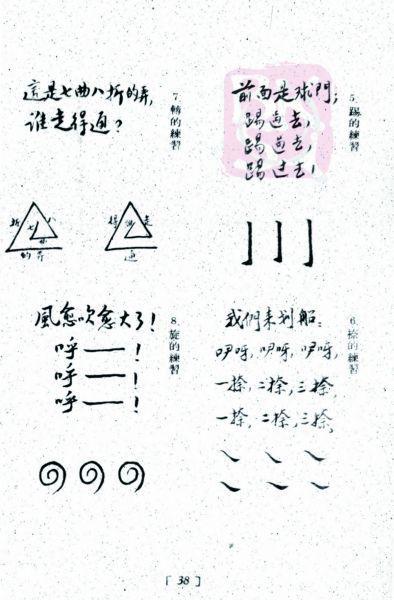 5. 踢的練習
前面是球門;
踢过去,
踢过去,
踢过去!
6. 捺的練習
我們来划船:
咿呀, 咿呀, 咿呀,
一捺, 二捺, 三捺,
一捺, 二捺, 三捺,
7. 轉的練習
這是七曲八折的弄,
谁走得通?
折 七 八
曲
的弄
得 走
通
8. 旋的練習
風愈吹愈大了!
呼——!
呼——!
呼——!
[ 38 ]